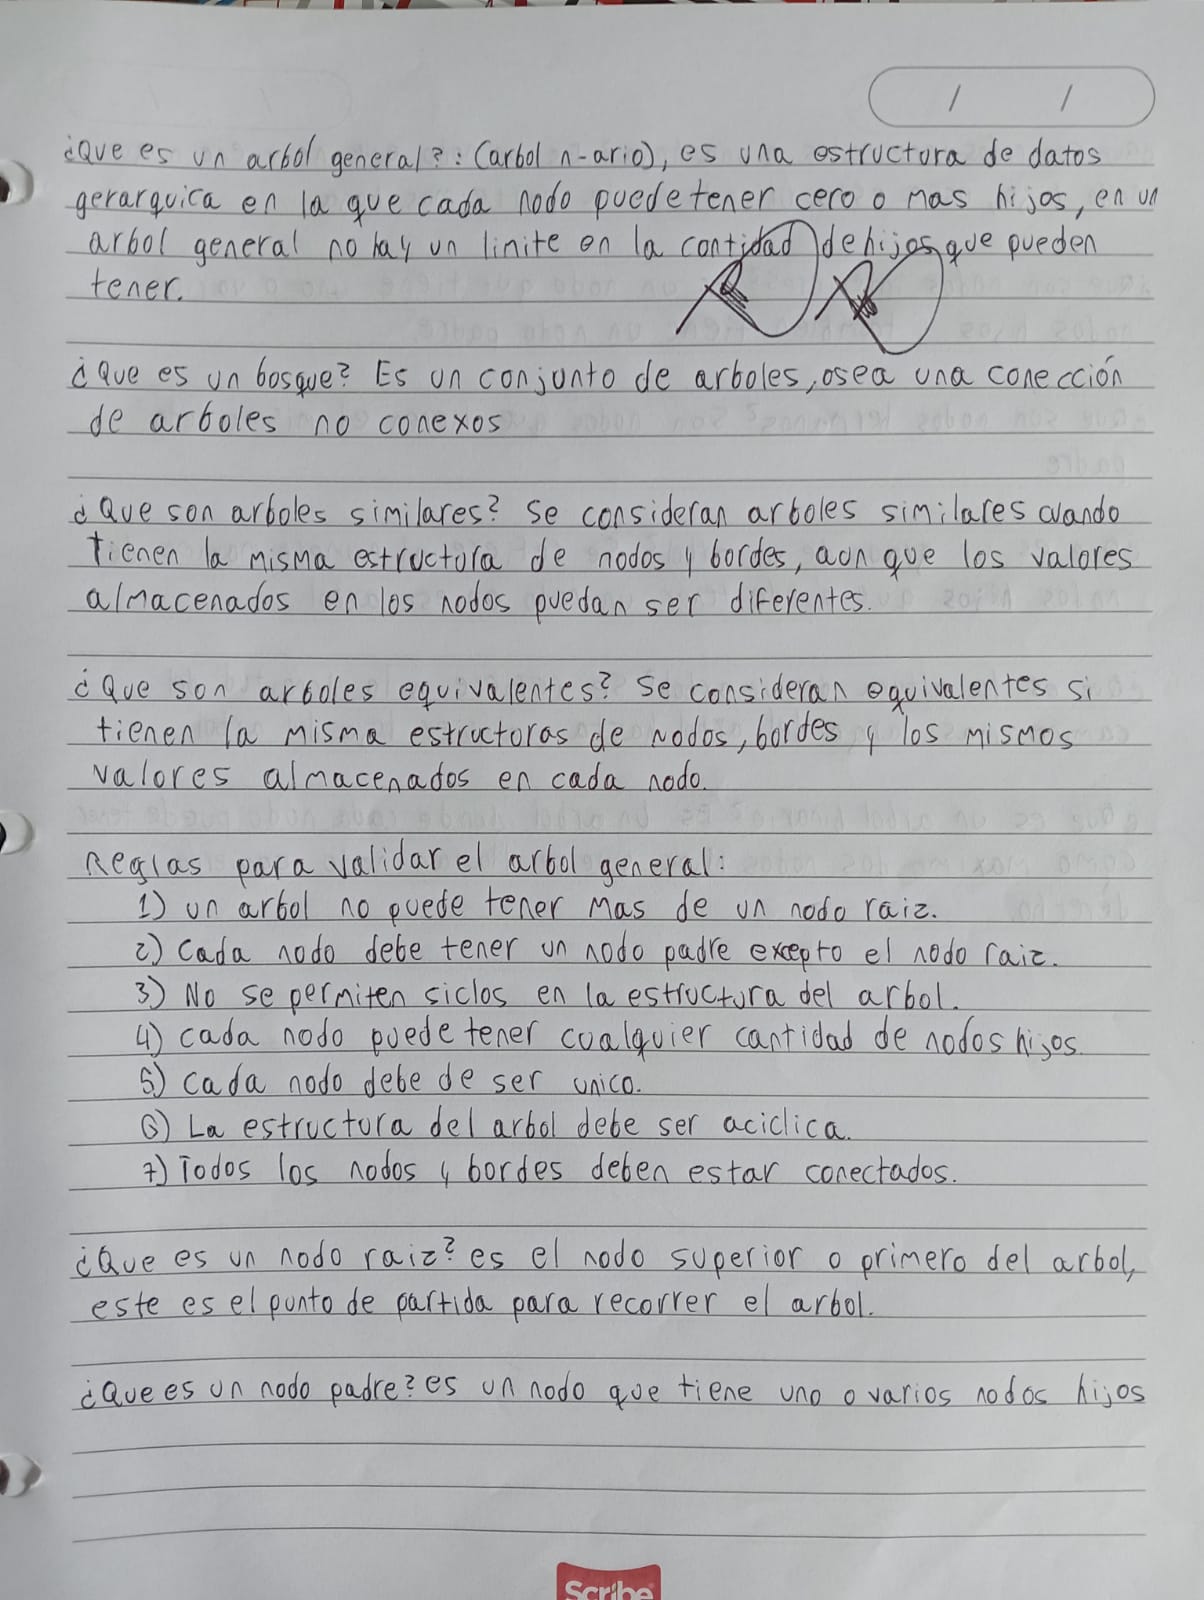 / /
¿Que es un arbol general?: (arbol n-ario), es una estructura de datos
gerarquica en la que cada nodo puede tener cero o mas hijos, en un
arbol general no hay un limite en la cantidad de hijos que pueden
tener.
¿Que es un bosque? Es un conjunto de arboles, osea una conección
de arboles no conexos
¿Que son arboles similares? Se consideran arboles similares cuando
tienen la misma estructura de nodos y bordes, aun que los valores
almacenados en los nodos puedan ser diferentes.
¿Que son arboles equivalentes? Se consideran equivalentes si
tienen la misma estructuras de nodos, bordes y los mismos
valores almacenados en cada nodo.
Reglas para validar el arbol general:
1) un arbol no puede tener mas de un nodo raiz.
2) Cada nodo debe tener un nodo padre excepto el nodo raiz.
3) No se permiten siclos en la estructura del arbol.
4) cada nodo puede tener cualquier cantidad de nodos hijos.
5) Cada nodo debe de ser unico.
6) La estructura del arbol debe ser aciclica.
7) Todos los nodos y bordes deben estar conectados.
¿Que es un nodo raiz? es el nodo superior o primero del arbol,
este es el punto de partida para recorrer el arbol.
¿Que es un nodo padre? es un nodo que tiene uno o varios nodos hijos
Scribe